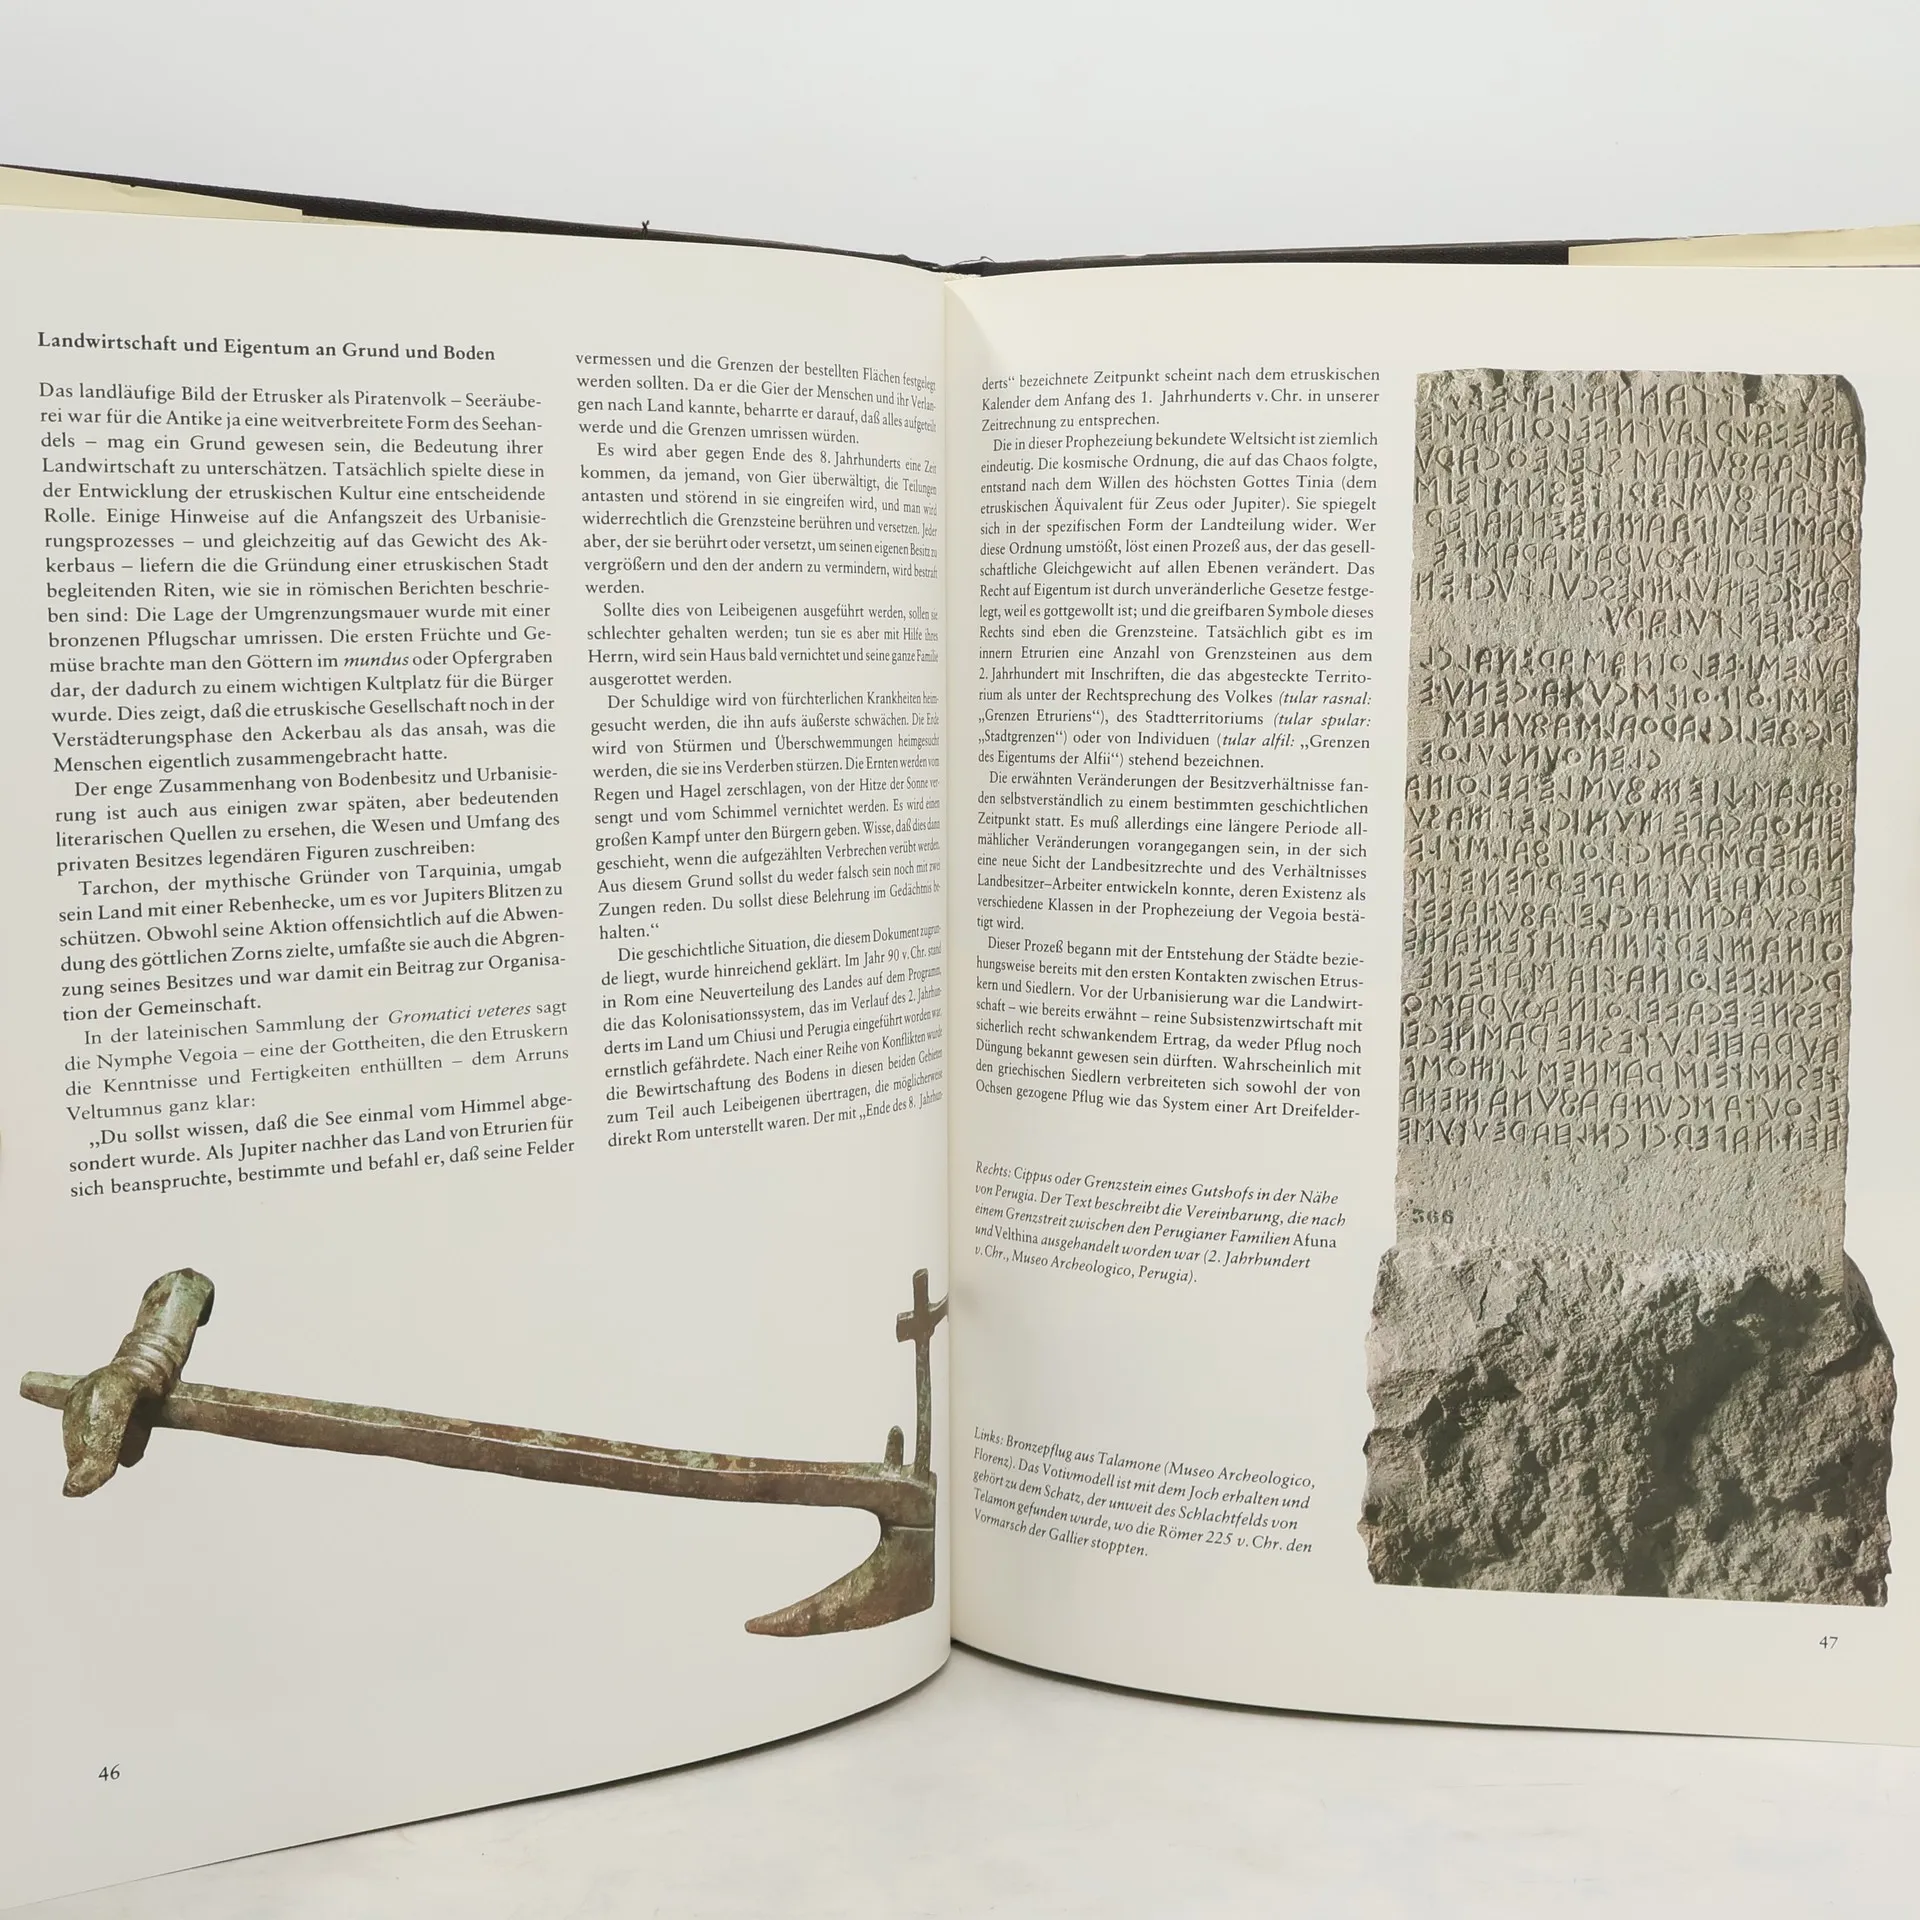 Landwirtschaft und Eigentum an Grund und Boden
Das landläufige Bild der Etrusker als Piratenvolk – Seeräube-
rei war für die Antike ja eine weitverbreitete Form des Seehan-
dels – mag ein Grund gewesen sein, die Bedeutung ihrer
Landwirtschaft zu unterschätzen. Tatsächlich spielte diese in
der Entwicklung der etruskischen Kultur eine entscheidende
Rolle. Einige Hinweise auf die Anfangszeit des Urbanisie-
rungsprozesses – und gleichzeitig auf das Gewicht des Ak-
kerbaus – liefern die die Gründung einer etruskischen Stadt
begleitenden Riten, wie sie in römischen Berichten beschrie-
ben sind: Die Lage der Umgrenzungsmauer wurde mit einer
bronzenen Pflugschar umrissen. Die ersten Früchte und Ge-
müse brachte man den Göttern im mundus oder Opfergraben
dar, der dadurch zu einem wichtigen Kultplatz für die Bürger
wurde. Dies zeigt, daß die etruskische Gesellschaft noch in der
Verstädterungsphase den Ackerbau als das ansah, was die
Menschen eigentlich zusammengebracht hatte.
Der enge Zusammenhang von Bodenbesitz und Urbanisie-
rung ist auch aus einigen zwar späten, aber bedeutenden
literarischen Quellen zu ersehen, die Wesen und Umfang des
privaten Besitzes legendären Figuren zuschreiben:
Tarchon, der mythische Gründer von Tarquinia, umgab
sein Land mit einer Rebenhecke, um es vor Jupiters Blitzen zu
schützen. Obwohl seine Aktion offensichtlich auf die Abwen-
dung des göttlichen Zorns zielte, umfaßte sie auch die Abgren-
zung seines Besitzes und war damit ein Beitrag zur Organisa-
tion der Gemeinschaft.
In der lateinischen Sammlung der Gromatici veteres sagt
die Nymphe Vegoia – eine der Gottheiten, die den Etruskern
die Kenntnisse und Fertigkeiten enthüllten – dem Arruns
Veltumnus ganz klar:
„Du sollst wissen, daß die See einmal vom Himmel abge-
sondert wurde. Als Jupiter nachher das Land von Etrurien für
sich beanspruchte, bestimmte und befahl er, daß seine Felder
vermessen und die Grenzen der bestellten Flächen festgelegt
werden sollten. Da er die Gier der Menschen und ihr Verlan-
gen nach Land kannte, beharrte er darauf, daß alles aufgeteilt
werde und die Grenzen umrissen würden.
Es wird aber gegen Ende des 8. Jahrhunderts eine Zeit
kommen, da jemand, von Gier überwältigt, die Teilungen
antasten und störend in sie eingreifen wird, und man wird
widerrechtlich die Grenzsteine berühren und versetzen. Jeder
aber, der sie berührt oder versetzt, um seinen eigenen Besitz zu
vergrößern und den der andern zu vermindern, wird bestraft
werden.
Sollte dies von Leibeigenen ausgeführt werden, sollen sie
schlechter gehalten werden; tun sie es aber mit Hilfe ihres
Herrn, wird sein Haus bald vernichtet und seine ganze Familie
ausgerottet werden.
Der Schuldige wird von fürchterlichen Krankheiten heim-
gesucht werden, die ihn aufs äußerste schwächen. Die Erde
wird von Stürmen und Überschwemmungen heimgesucht
werden, die sie ins Verderben stürzen. Die Ernten werden vom
Regen und Hagel zerschlagen, von der Hitze der Sonne ver-
sengt und vom Schimmel vernichtet werden. Es wird einen
großen Kampf unter den Bürgern geben. Wisse, daß dies dann
geschieht, wenn die aufgezählten Verbrechen verübt werden.
Aus diesem Grund sollst du weder falsch sein noch mit zwei
Zungen reden. Du sollst diese Belehrung im Gedächtnis be-
halten.“
Die geschichtliche Situation, die diesem Dokument zugrun-
de liegt, wurde hinreichend geklärt. Im Jahr 90 v. Chr. stand
in Rom eine Neuverteilung des Landes auf dem Programm,
die das Kolonisationssystem, das im Verlauf des 2. Jahrhun-
derts im Land um Chiusi und Perugia eingeführt worden war,
ernstlich gefährdete. Nach einer Reihe von Konflikten wurde
die Bewirtschaftung des Bodens in diesen beiden Gebieten
zum Teil auch Leibeigenen übertragen, die möglicherweise
direkt Rom unterstellt waren. Der mit „Ende des 8. Jahrhun-
46
derts“ bezeichnete Zeitpunkt scheint nach dem etruskischen
Kalender dem Anfang des 1. Jahrhunderts v. Chr. in unserer
Zeitrechnung zu entsprechen.
Die in dieser Prophezeiung bekundete Weltsicht ist ziemlich
eindeutig. Die kosmische Ordnung, die auf das Chaos folgte,
entstand nach dem Willen des höchsten Gottes Tinia (dem
etruskischen Äquivalent für Zeus oder Jupiter). Sie spiegelt
sich in der spezifischen Form der Landteilung wider. Wer
diese Ordnung umstößt, löst einen Prozeß aus, der das gesell-
schaftliche Gleichgewicht auf allen Ebenen verändert. Das
Recht auf Eigentum ist durch unveränderliche Gesetze festge-
legt, weil es gottgewollt ist; und die greifbaren Symbole dieses
Rechts sind eben die Grenzsteine. Tatsächlich gibt es im
innern Etrurien eine Anzahl von Grenzsteinen aus dem
2. Jahrhundert mit Inschriften, die das abgesteckte Territo-
rium als unter der Rechtsprechung des Volkes (tular rasnal:
„Grenzen Etruriens“), des Stadtterritoriums (tular spular:
„Stadtgrenzen“) oder von Individuen (tular alfil: „Grenzen
des Eigentums der Alfii“) stehend bezeichnen.
Die erwähnten Veränderungen der Besitzverhältnisse fan-
den selbstverständlich zu einem bestimmten geschichtlichen
Zeitpunkt statt. Es muß allerdings eine längere Periode all-
mählicher Veränderungen vorangegangen sein, in der sich
eine neue Sicht der Landbesitzrechte und des Verhältnisses
Landbesitzer–Arbeiter entwickeln konnte, deren Existenz als
verschiedene Klassen in der Prophezeiung der Vegoia bestä-
tigt wird.
Dieser Prozeß begann mit der Entstehung der Städte bezie-
hungsweise bereits mit den ersten Kontakten zwischen Etrus-
kern und Siedlern. Vor der Urbanisierung war die Landwirt-
schaft – wie bereits erwähnt – reine Subsistenzwirtschaft mit
sicherlich recht schwankendem Ertrag, da weder Pflug noch
Düngung bekannt gewesen sein dürften. Wahrscheinlich mit
den griechischen Siedlern verbreiteten sich sowohl der von
Ochsen gezogene Pflug wie das System einer Art Dreifelder-
Rechts: Cippus oder Grenzstein eines Gutshofs in der Nähe
von Perugia. Der Text beschreibt die Vereinbarung, die nach
einem Grenzstreit zwischen den Perugianer Familien Afuna
und Velthina ausgehandelt worden war (2. Jahrhundert
v. Chr., Museo Archeologico, Perugia).
Links: Bronzepflug aus Talamone (Museo Archeologico,
Florenz). Das Votivmodell ist mit dem Joch erhalten und
gehört zu dem Schatz, der unweit des Schlachtfelds von
Telamon gefunden wurde, wo die Römer 225 v. Chr. den
Vormarsch der Gallier stoppten.
366
47